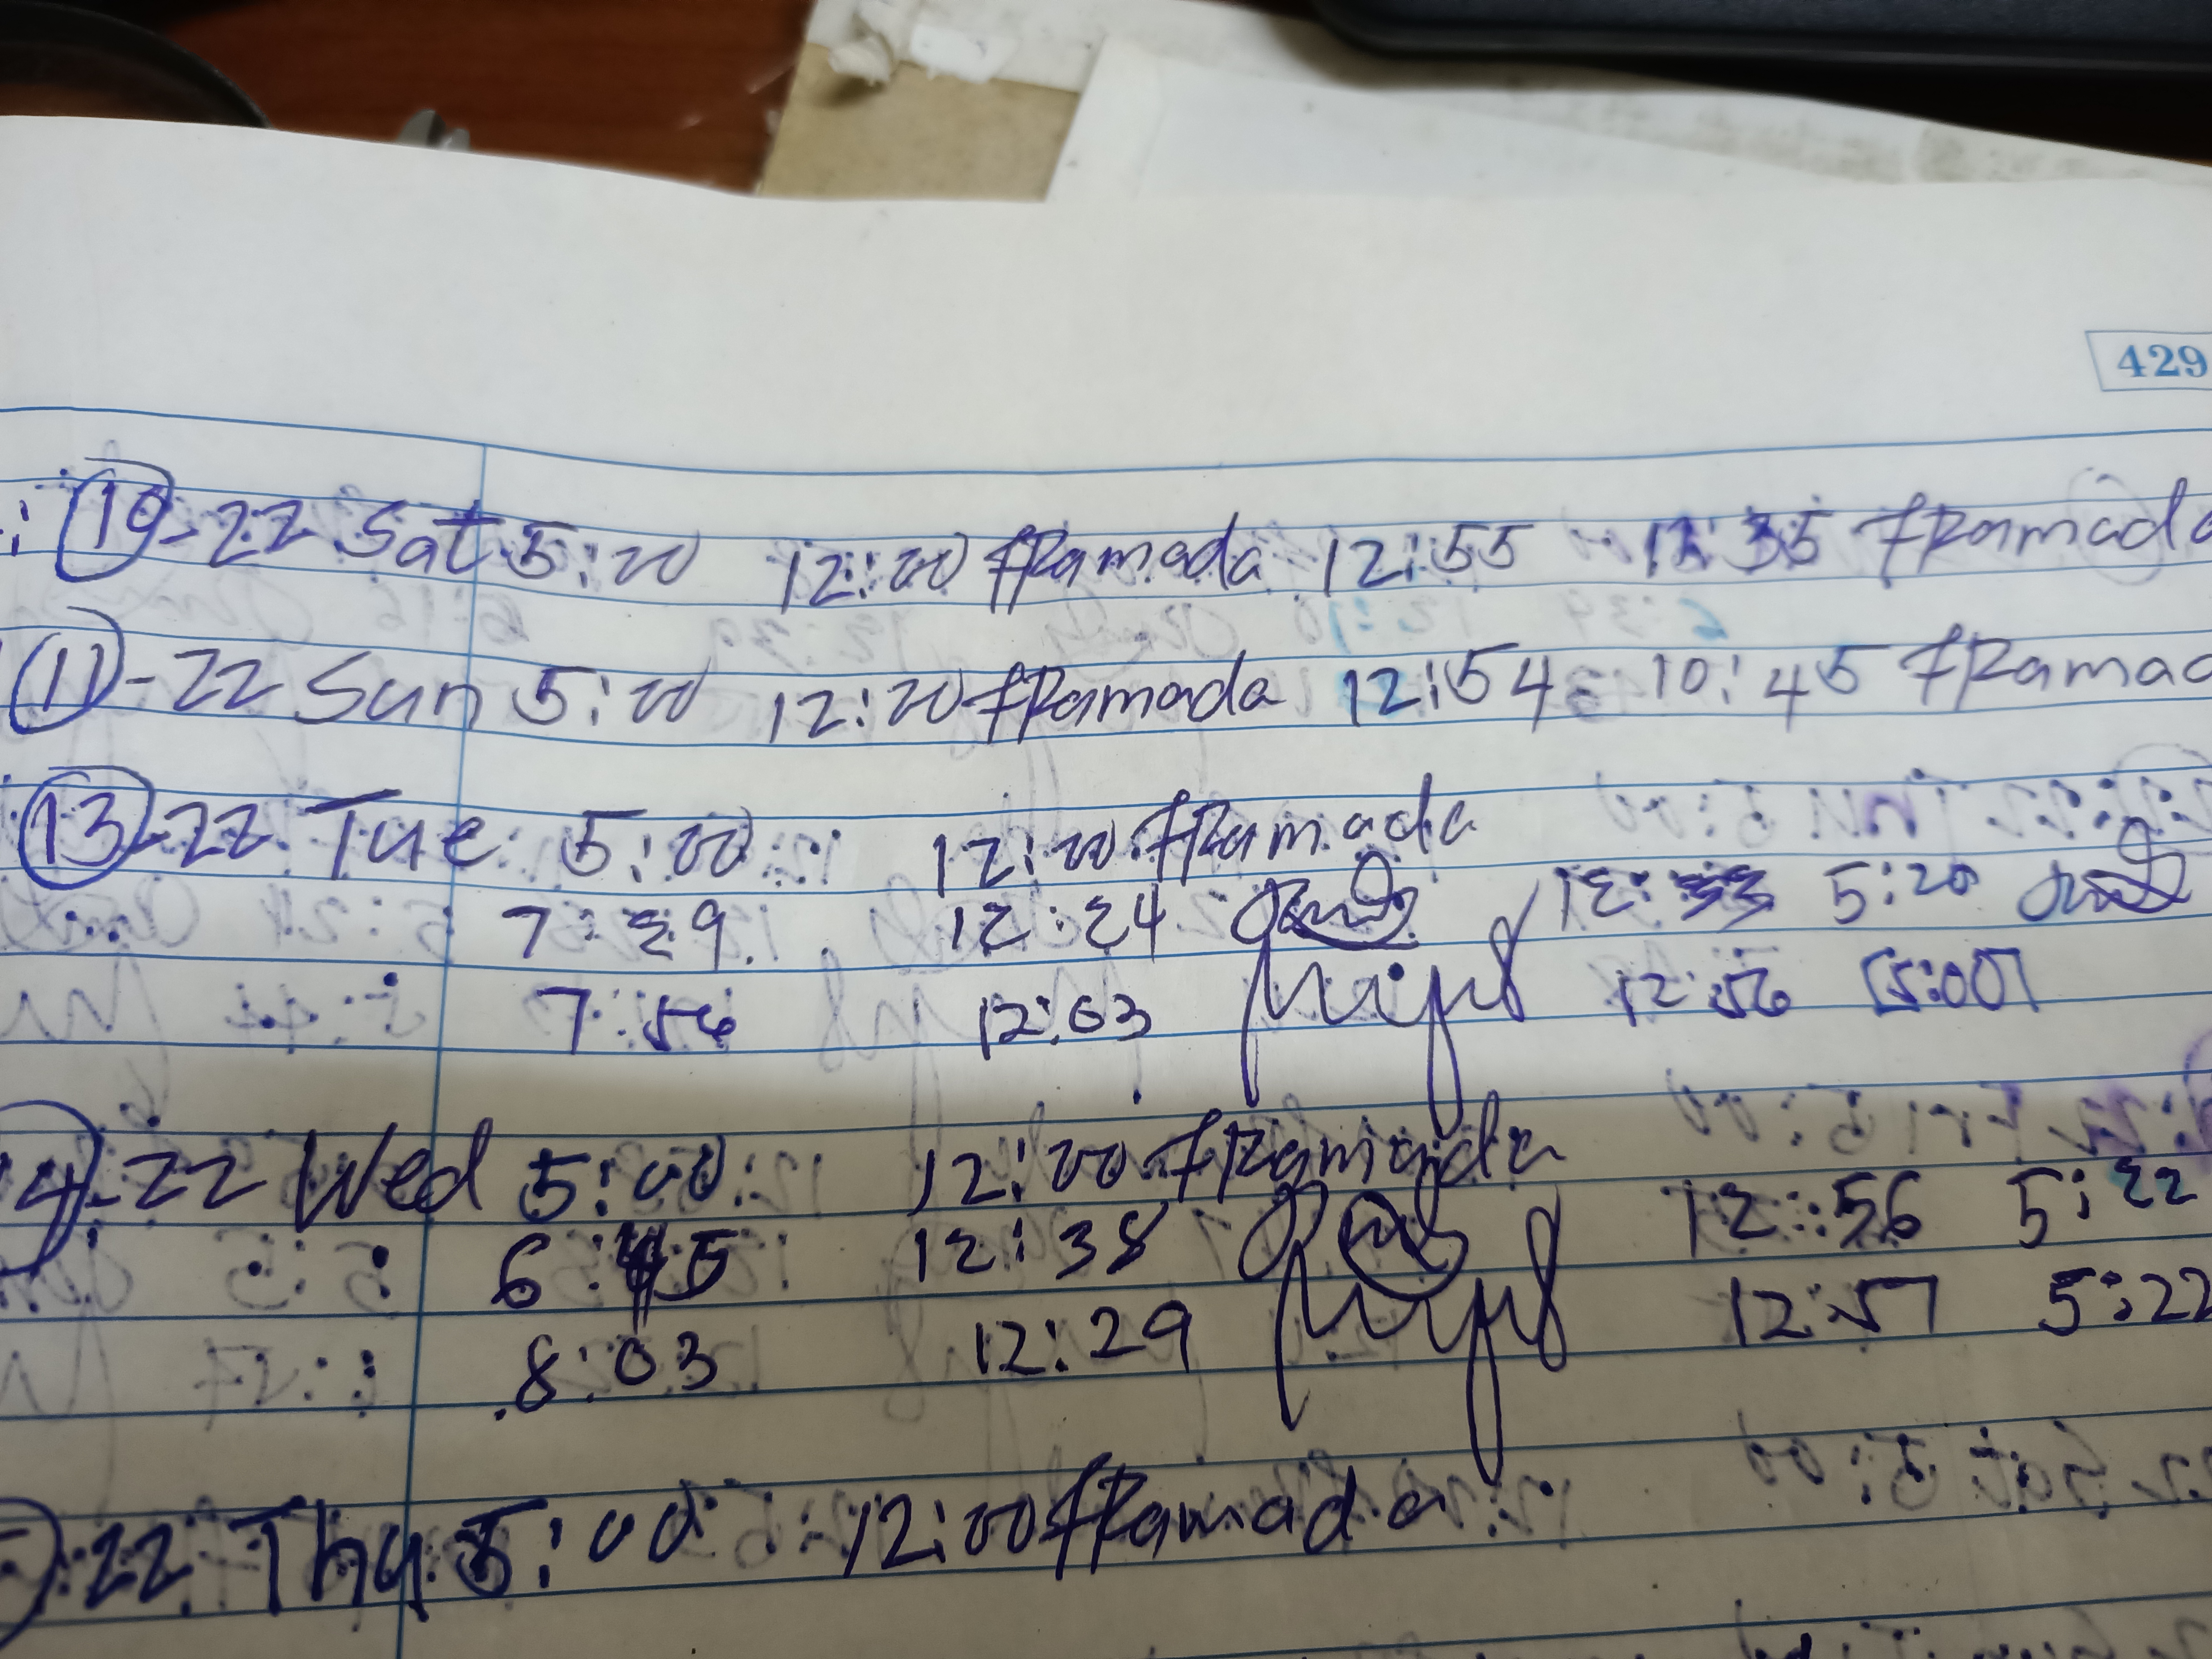 429
10-22 Sat 5:00 12:00 fRamada 12:55 fRamada
11-22 Sun 5:00 12:20 fRamada 12:54 10:45 fRamad
13-22 Tue 5:00 12:00 fRamada
7:39 12:24 5:20
7:56 12:03 12:56 5:00
14-22 Wed 5:00 12:00 fRamada
6:45 12:38 12:56 5:22
8:03 12:29 12:57 5:22
22 Thu 5:00 12:00 fRamada